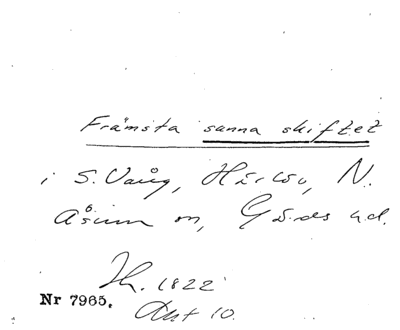 Främsta sanna skiftet
i S. Vång, Härlöv, N.
Åsum sn, Gärds hd.
Sk. 1822
Nr 7965. Akt 10.